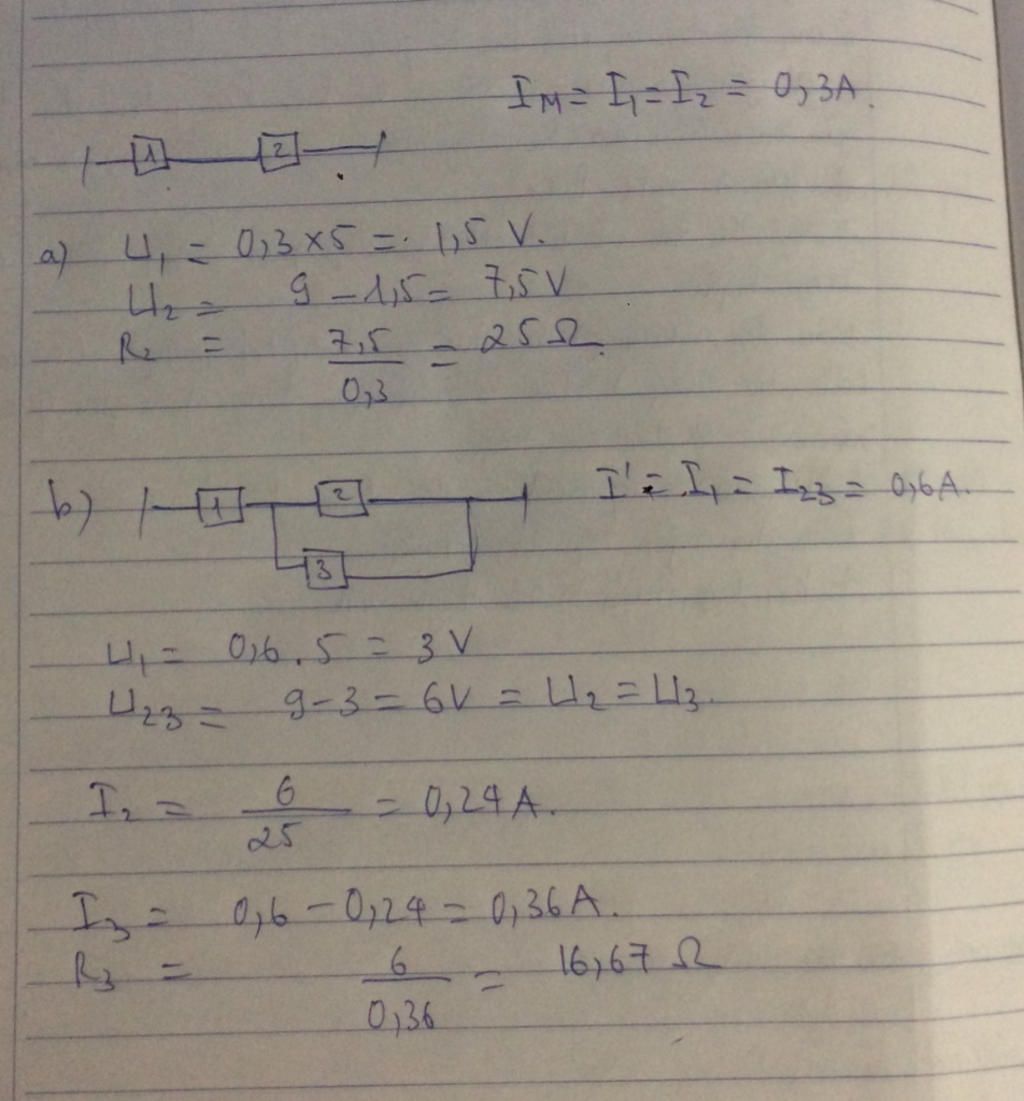 I_M = I_1 = I_2 = 0,3A.
1 2
a) U_1 = 0,3 x 5 = 1,5 V.
U_2 = 9 - 1,5 = 7,5V
R_2 = 7,5/0,3 = 25 Ω.
b) 1 2 3 I' = I_1 = I_23 = 0,6A.
U_1 = 0,6 . 5 = 3 V
U_23 = 9-3 = 6V = U_2 = U_3.
I_2 = 6/25 = 0,24A.
I_3 = 0,6 - 0,24 = 0,36A.
R_3 = 6/0,36 = 16,67 Ω